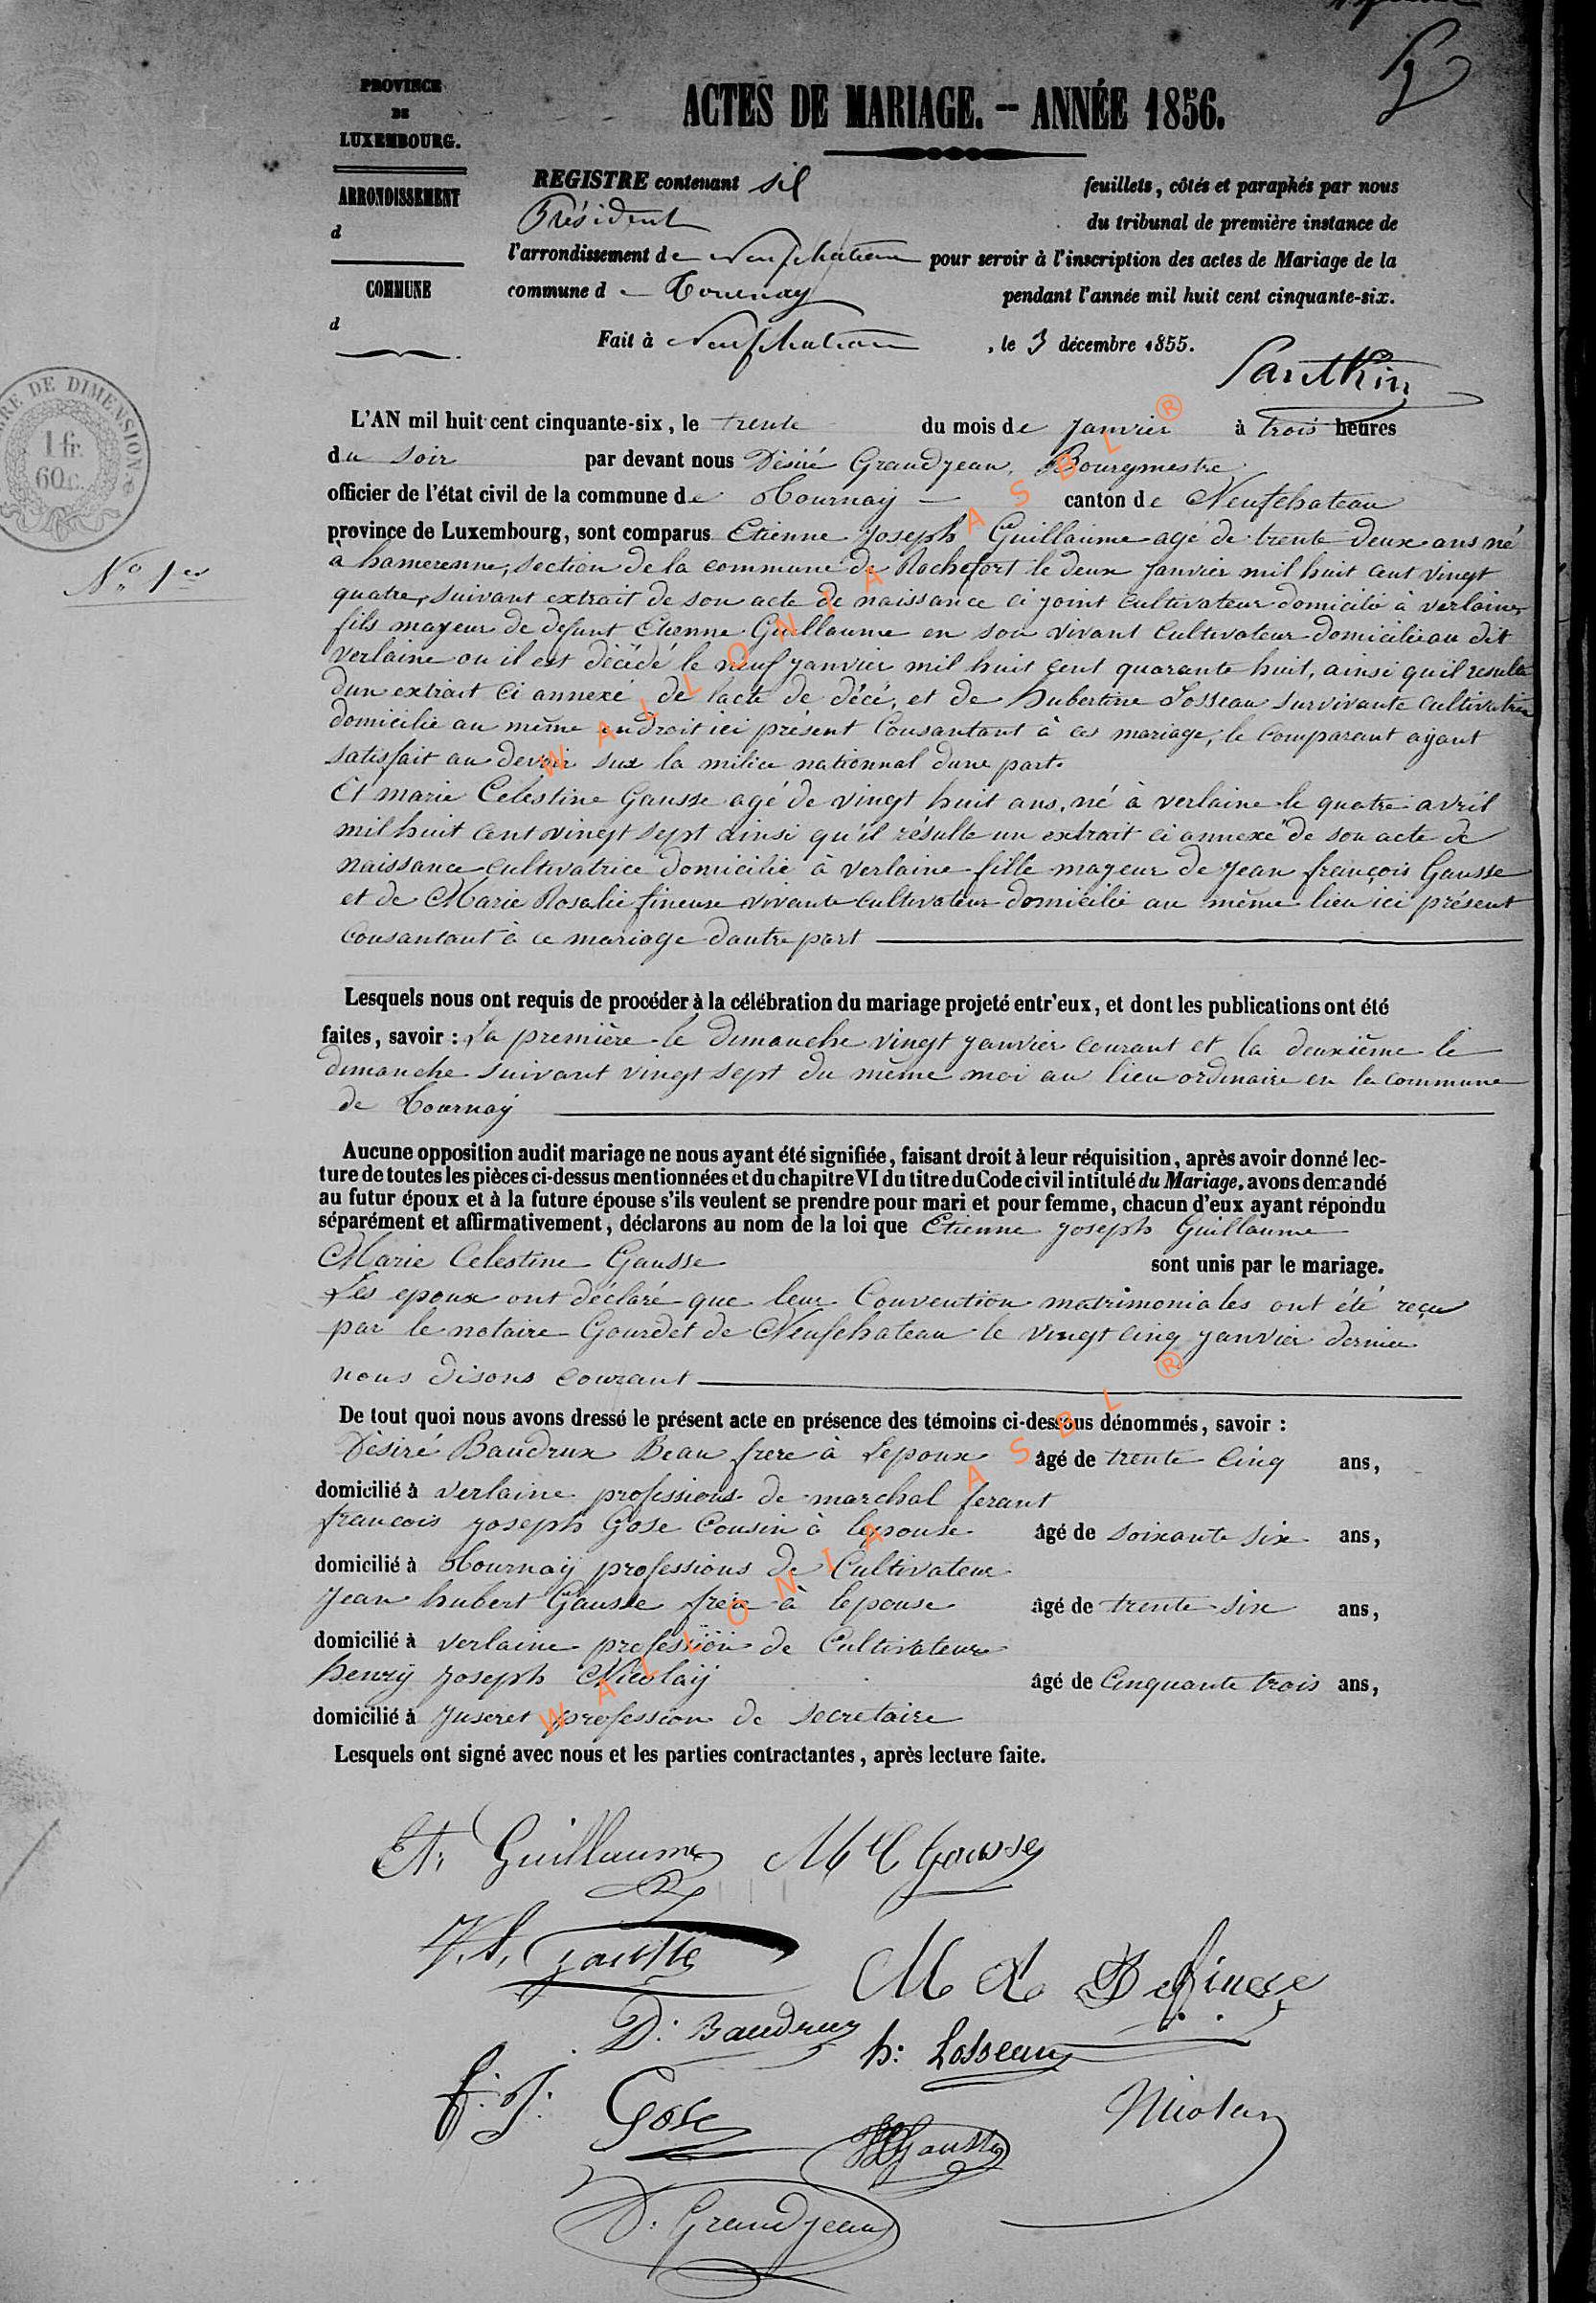 PROVINCE
DE
LUXEMBOURG.
ARRONDISSEMENT
d
COMMUNE
d
ACTES DE MARIAGE. — ANNÉE 1856.
REGISTRE contenant six feuillets, côtés et paraphés par nous
Président du tribunal de première instance de
l'arrondissement de Neufchateau pour servir à l'inscription des actes de Mariage de la
commune de Tournay pendant l'année mil huit cent cinquante-six.
Fait à Neufchateau, le 3 décembre 1855.
DE DIMENSION
1 fr.
60 c.
L'AN mil huit cent cinquante-six, le trente du mois de Janvier à trois heures
du soir par devant nous Désiré Grandjean, Bourgmestre
officier de l'état civil de la commune de Tournay canton de Neufchateau
province de Luxembourg, sont comparus Etienne Joseph Guillaume agé de trente deux ans né
N° 1er
à hamerenne, section de la commune de Rochefort le deux janvier mil huit cent vingt
quatre, suivant extrait de son acte de naissance ci joint cultivateur domicilié à verlaine,
fils mayeur de defunt Etienne Guillaume en son vivant cultivateur domicilié au dit
verlaine ou il est décédé le neuf janvier mil huit cent quarante huit, ainsi qu'il resulte
dun extrait ci annexé de l'acte de décé, et de hubertine Losseau survivante cultivatrice
domicilié au même endroit ici présent Consantant à ces mariage, le Comparant ayant
satisfait au devoir sur la milice nationnal dune part.
Et marie Celestine Gausse agé de vingt huit ans, né à verlaine le quatre avril
mil huit cent vingt sept ainsi qu'il résulte un extrait ci annexe de son acte de
naissance cultivatrice domicilié à verlaine fille mayeur de Jean françois Gausse
et de Marie Rosalie fineuse vivante cultivateur domicilié au même lieu ici présent
Consantant à ce mariage dautre part
Lesquels nous ont requis de procéder à la célébration du mariage projeté entr'eux, et dont les publications ont été
faites, savoir : La première le dimanche vingt janvier courant et la deuxième le
dimanche suivant vingt sept du même moi au lieu ordinaire en la commune
de Tournay
Aucune opposition audit mariage ne nous ayant été signifiée, faisant droit à leur réquisition, après avoir donné lec-
ture de toutes les pièces ci-dessus mentionnées et du chapitre VI du titre du Code civil intitulé du Mariage, avons demandé
au futur époux et à la future épouse s'ils veulent se prendre pour mari et pour femme, chacun d'eux ayant répondu
séparément et affirmativement, déclarons au nom de la loi que Etienne Joseph Guillaume
Marie Celestine Gausse sont unis par le mariage.
Les epoux ont déclaré que leur Convention matrimoniales ont été reçu
par le notaire Gourdet de Neufchateau le vingt cinq janvier dernier
nous disons courant
De tout quoi nous avons dressé le présent acte en présence des témoins ci-dessous dénommés, savoir :
Désiré Baudrux Beau frere à Lepoux âgé de trente Cinq ans,
domicilié à verlaine professions de marchal ferant
francois Joseph Gose Cousin à lepouse âgé de soixante six ans,
domicilié à Tournay professions de Cultivateur
Jean hubert Gausse frere à lepouse âgé de trente six ans,
domicilié à verlaine profession de Cultivateur
henry Joseph Nicolaÿ âgé de Cinquante trois ans,
domicilié à Juseret profession de secretaire
Lesquels ont signé avec nous et les parties contractantes, après lecture faite.
Et. Guillaume M C Gausse
J. f. Gausse
D. Baudrux
h: Losseau
f. J. Gose
Gausse
Nicolay
D. Grandjean
WALLONIA ASBL ®
WALLONIA ASBL ®